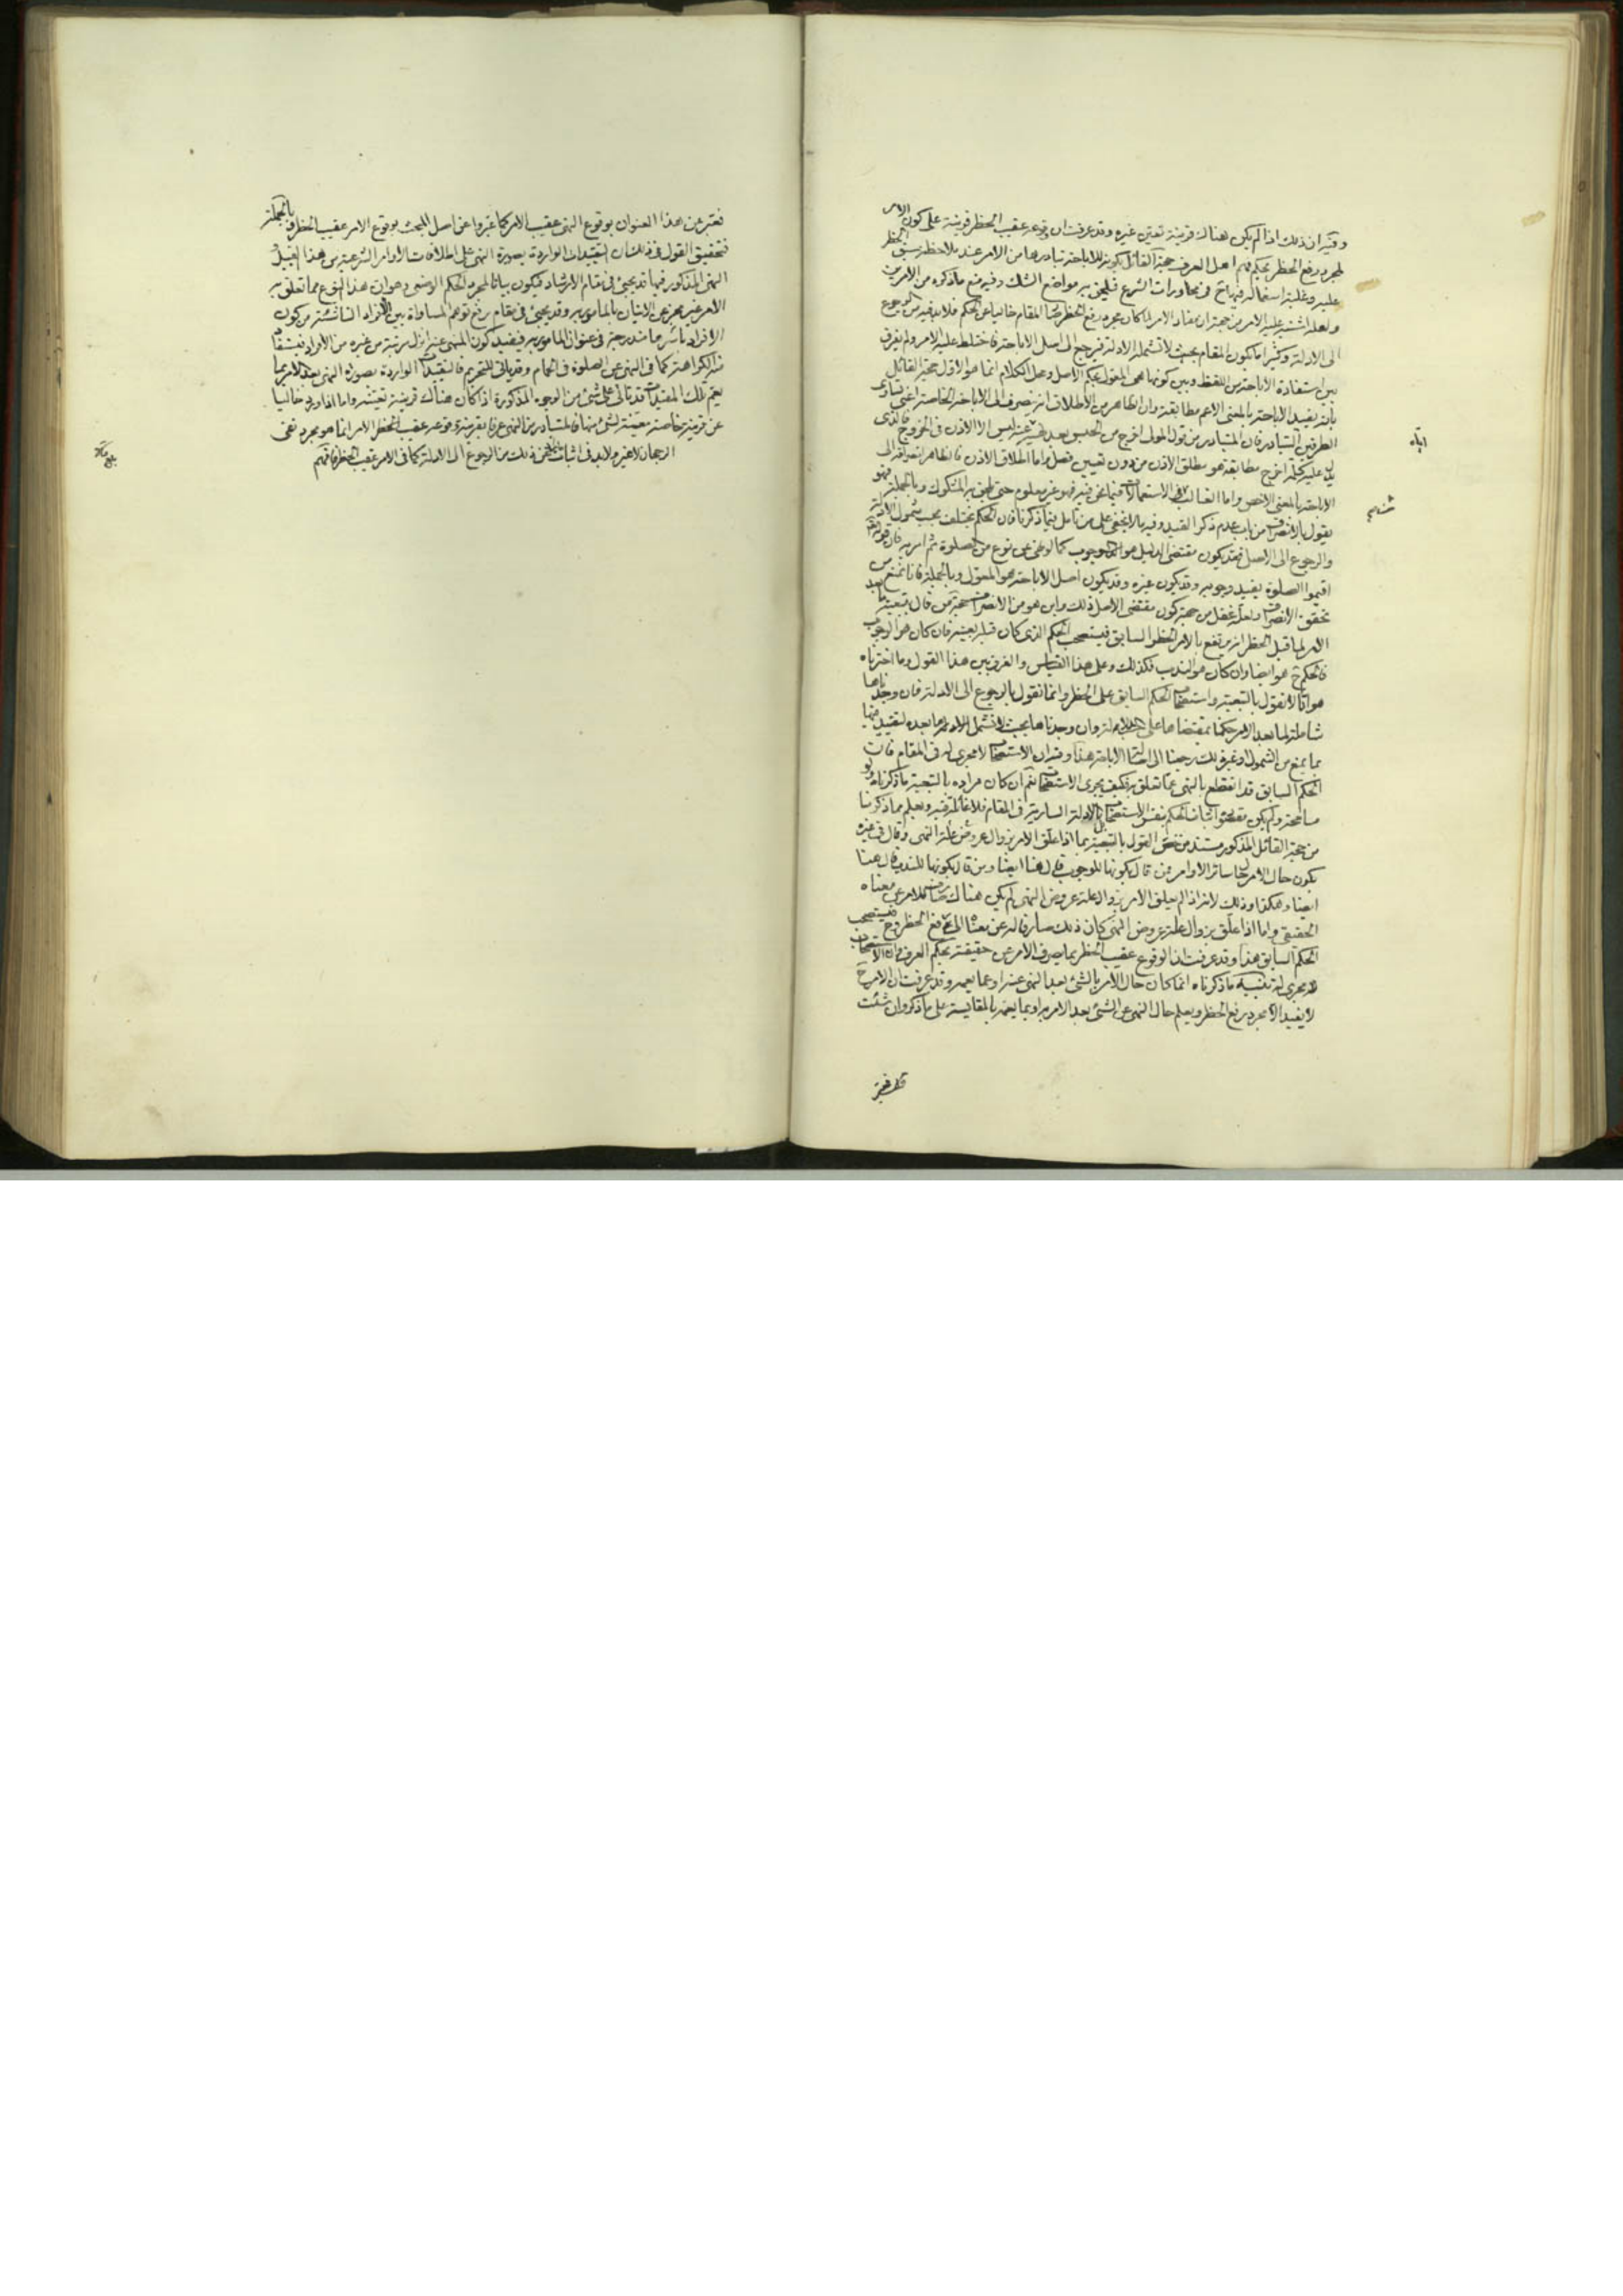 وفيه ان ذلك اذا لم يكن هناك قرينة تعين غيره وقد عرفت ان وقوعه عقيب الحظر قرينة على كون الامر
لمجرد رفع الحظر بحكم فهم اهل العرف حجة القائل بكونه للاباحة تبادرها من الامر عند ملاحظة سبق الحظر
عليه وغلبة استعماله فيها في محاورات الشرع فيلحق به مواضع الشك وفيه منع ما ذكره من الامرين
ولعله اشتبه عليه الامر من جهة ان مفاد الامر لما كان مجرد رفع الحظر كان المقام خاليا عن الحكم فلا بد فيه من الرجوع
الى الادلة وكثيرا ما يكون المقام بحيث لا تشمله الادلة فيرجع الى اصل الاباحة فاختلط عليه الامر ولم يفرق
بين استفادة الاباحة من اللفظ وبين كونها هي المعول بحكم الاصل ومحل الكلام انما هو الاول حجة القائل
بانه يفيد الاباحة بالمعنى الاعم مطابقة وان الظاهر من الاطلاق انه ينصرف الى الاباحة الخاصة اعني تساوى
الطرفين التبادر فان المتبادر من قول المولى اخرج من الحبس بعد نهيه عنه ليس الا الاذن في الخروج فالذى
يدل عليه كلمة اخرج مطابقة هو مطلق الاذن من دون تعيين فصل واما اطلاق الاذن فالظاهر انصرافه الى
الاباحة بالمعنى الاخص واما الغالب في الاستعمالات فيما نحن فيه فهو غير معلوم حتى يلحق به المشكوك وبالجملة فهو
يقول بالانصراف من باب عدم ذكر القيد وفيه ما لا يخفى على من تامل فيما ذكرنا فان الحكم يختلف بحسب شمول الادلة
والرجوع الى الاصل فقد يكون مقتضى الدليل هو الوجوب كما لو نهى عن نوع من الصلوة ثم امر به فان قوله تعالى
اقيموا الصلوة يفيد وجوبه وقد يكون غيره وقد يكون اصل الاباحة هو المعول وبالجملة فانا نمنع من
تحقق الانصراف ولعله غفل من جهة كون مقتضى الاصل ذلك واين هو من الانصراف حجة من قال بتبعية ما بعد
الامر لما قبل الحظر انه يرتفع بالامر الحظر السابق فيستصحب الحكم الذى كان قبله بعينه فان كان هو الوجوب
فالحكم ح هو ايضا وان كان هو الندب فكذلك وعلى هذا القياس والفرق بين هذا القول وما اخترناه
هو انا لا نقول بالتبعية واستصحاب الحكم السابق على الحظر وانما نقول بالرجوع الى الادلة فان وجدناها
شاملة لما بعد الامر حكمنا بمقتضاها وان وجدناها بحيث لا تشمل ما بعده لتقييد فيها
بما يمنع من الشمول او غير ذلك رجعنا الى الاباحة هذا وفيه ان الاستصحاب لا مجرى له في المقام فان
الحكم السابق قد انقطع بالنهى عما تعلق به فكيف يجرى الاستصحاب نعم ان كان مراده بالتبعية ما ذكرناه ولو
مسامحة ولم يكن مقصوده اثبات الحكم بنفس الاستصحاب بل بالادلة السارية في المقام فلا غائلة فيه ويعلم مما ذكرنا
من حجة القائل المذكور مستند من خص القول بالتبعية بما اذا علق الامر بزوال عروض علة النهى وقال في غيره
يكون حال الامر كحال سائر الاوامر فمن قال بكونها للوجوب قال هنا ايضا ومن قال بكونها للندب قال هنا
ايضا وهكذا وذلك لانه اذا لم يعلق الامر بزوال علة عروض النهى لم يكن هناك صارف للامر عن معناه
الحقيقى واما اذا علق بزوال علة عروض النهى كان ذلك صارفا له عن معناه الى رفع الحظر وح فيستصحب
الحكم السابق هذا وقد عرفت ان الوقوع عقيب الحظر مما يصرف الامر عن حقيقته بحكم العرف وان الاستصحاب
لا مجرى له تنبيه ما ذكرناه انما كان حال الامر بالشئ بعد النهى عنه او عما يعمه وقد عرفت ان الامر ح
لا يفيد الا مجرد رفع الحظر ويعلم حال النهى عن الشئ بعد الامر به او بما يعمه بالمقايسة على ما ذكر وان شئت
فعبر عن هذا العنوان بوقوع النهى عقيب الامر كما عبروا عن اصل المبحث بوقوع الامر عقيب الحظر وبالجملة
فتحقيق القول في ذلك ان التقييدات الواردة بصورة النهى على اطلاقات الاوامر الشرعية من هذا القبيل
النهى المذكور فيها قد يجئ في مقام الارشاد فيكون بيانا لمجرد الحكم الوضعى وهو ان هذا النوع مما تعلق به
الامر غير مجز عن الاتيان بالمامور به وقد يجئ في مقام رفع توهم المساواة بين الافراد الناشئة من كون
الافراد باسرها مندرجة في عنوان المامور به فيفيد كون المنهى عنه انزل مرتبة من غيره من الافراد فيستفاد
منه الكراهة كما في النهى عن الصلوة في الحمام وقد ياتى للتحريم فالتقييدات الواردة بصورة النهى بعد الامر بما
يعم تلك المقيدات قد تاتى على شئ من الوجوه المذكورة اذا كان هناك قرينة تعينه واما اذا ورد خاليا
عن قرينة خاصة معينة لشئ منها فالمتبادر من النهى عرفا بقرينة وقوعه عقيب الامر انما هو مجرد نفى
الرجحان لا غير ولا بد في اثبات من ذلك من الرجوع الى الادلة كما في الامر عقيب الحظر فافهم